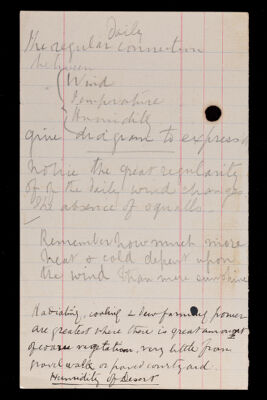 Daily
The regular connection
between
Wind
Temperature
Humidity
give diagram to express
Notice the great regularity
of the daily wind changes
The absence of squalls
Remember how much more
heat & cold depend upon
the wind than mere sunshine
Radiating, cooling & dew forming power
are greatest where there is great amount
of coarse vegetation, very little from
gravel walk or paved courtyard.
Humidity of Desert